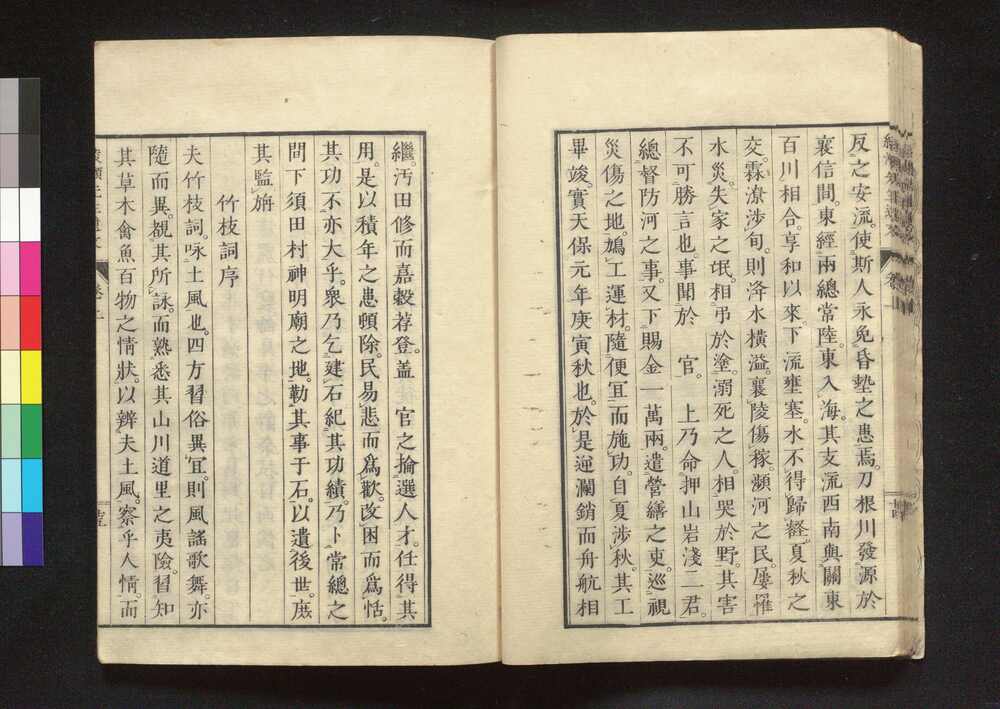 反之安流。使斯人永免昏墊之患焉。刀根川發源於
襄信間。東經兩總常陸。東入海。其支流西南與關東
百川相合。享和以來。下流壅塞。水不得歸経。夏秋之
交。霖潦涉旬。則洚水橫溢。襄陵傷稼。瀕河之民。屢罹
水災。失家之氓。相弔於塗。溺死之人。相哭於野。其害
不可勝言也。事聞於 官。 上乃命押山岩淺二君。
總督防河之事。又下賜金一萬兩。遣營繕之吏。巡視
災傷之地。鳩工運材。隨便宜而施功。自夏涉秋。其工
畢竣。實天保元年庚寅秋也。於是逆瀾銷而舟航相
繼。汚田修而嘉穀荐登。蓋 官之掄選人才。任得其
用。是以積年之患頓除。民易悲而爲歡。改困而爲恬。
其功不亦大乎。衆乃乞建石紀其功績。乃卜常總之
間下須田村神明廟之地。勒其事于石。以遺後世。庶
其監旃
竹枝詞序
夫竹枝詞。咏土風也。四方習俗異宜。則風謠歌舞。亦
隨而異。覩其所詠。而熟悉其山川道里之夷險。習知
其草木禽魚百物之情狀。以辨夫土風。察乎人情。而
卷二